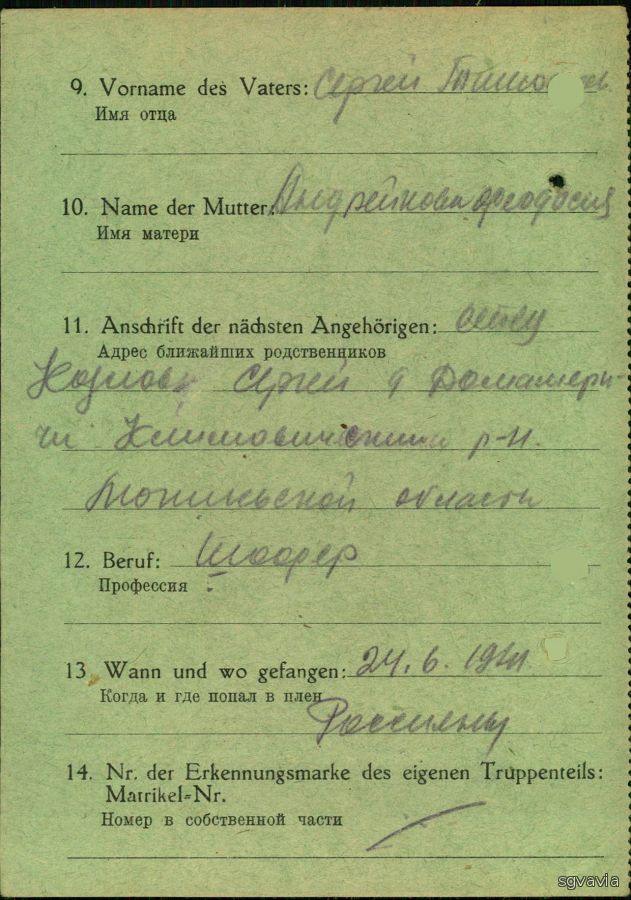 9. Vorname des Vaters: Сергей
Имя отца
10. Name der Mutter: Андрейкова Феодосия
Имя матери
11. Anschrift der nächsten Angehörigen: отец
Адрес ближайших родственников
Козлов Сергей д
Климовический р-н.
Могилевской области
12. Beruf: Шофер
Профессия
13. Wann und wo gefangen: 24.6.1941
Когда и где попал в плен
Россиены
14. Nr. der Erkennungsmarke des eigenen Truppenteils:
Matrikel=Nr.
Номер в собственной части
sgvavia